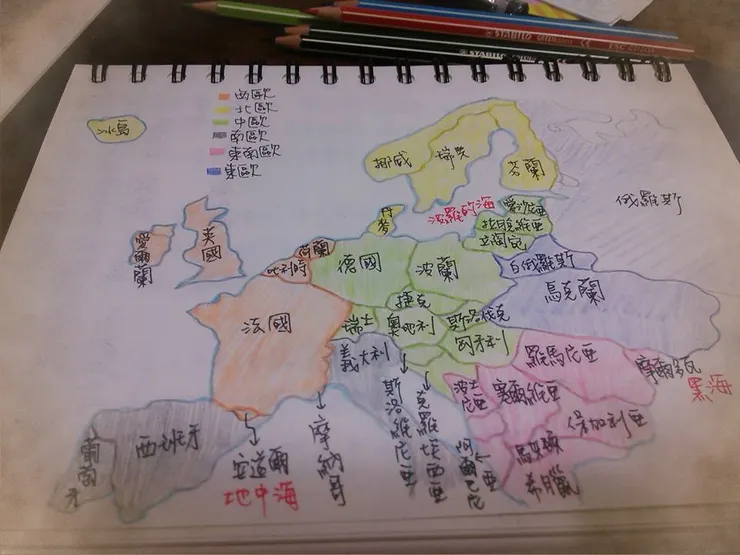 STABILO
西歐
北歐
中歐
南歐
東南歐
東歐
冰島
挪威
瑞典
芬蘭
俄羅斯
丹麥
波羅的海
愛沙尼亞
拉脫維亞
立陶宛
愛爾蘭
英國
荷蘭
比利時
德國
波蘭
白俄羅斯
烏克蘭
法國
瑞士
捷克
奧地利
斯洛伐克
匈牙利
義大利
羅馬尼亞
摩爾多瓦
黑海
斯洛維尼亞
克羅埃西亞
波士尼亞
塞爾維亞
保加利亞
馬其頓
希臘
阿爾巴尼亞
葡萄牙
西班牙
安道爾
地中海
摩納哥